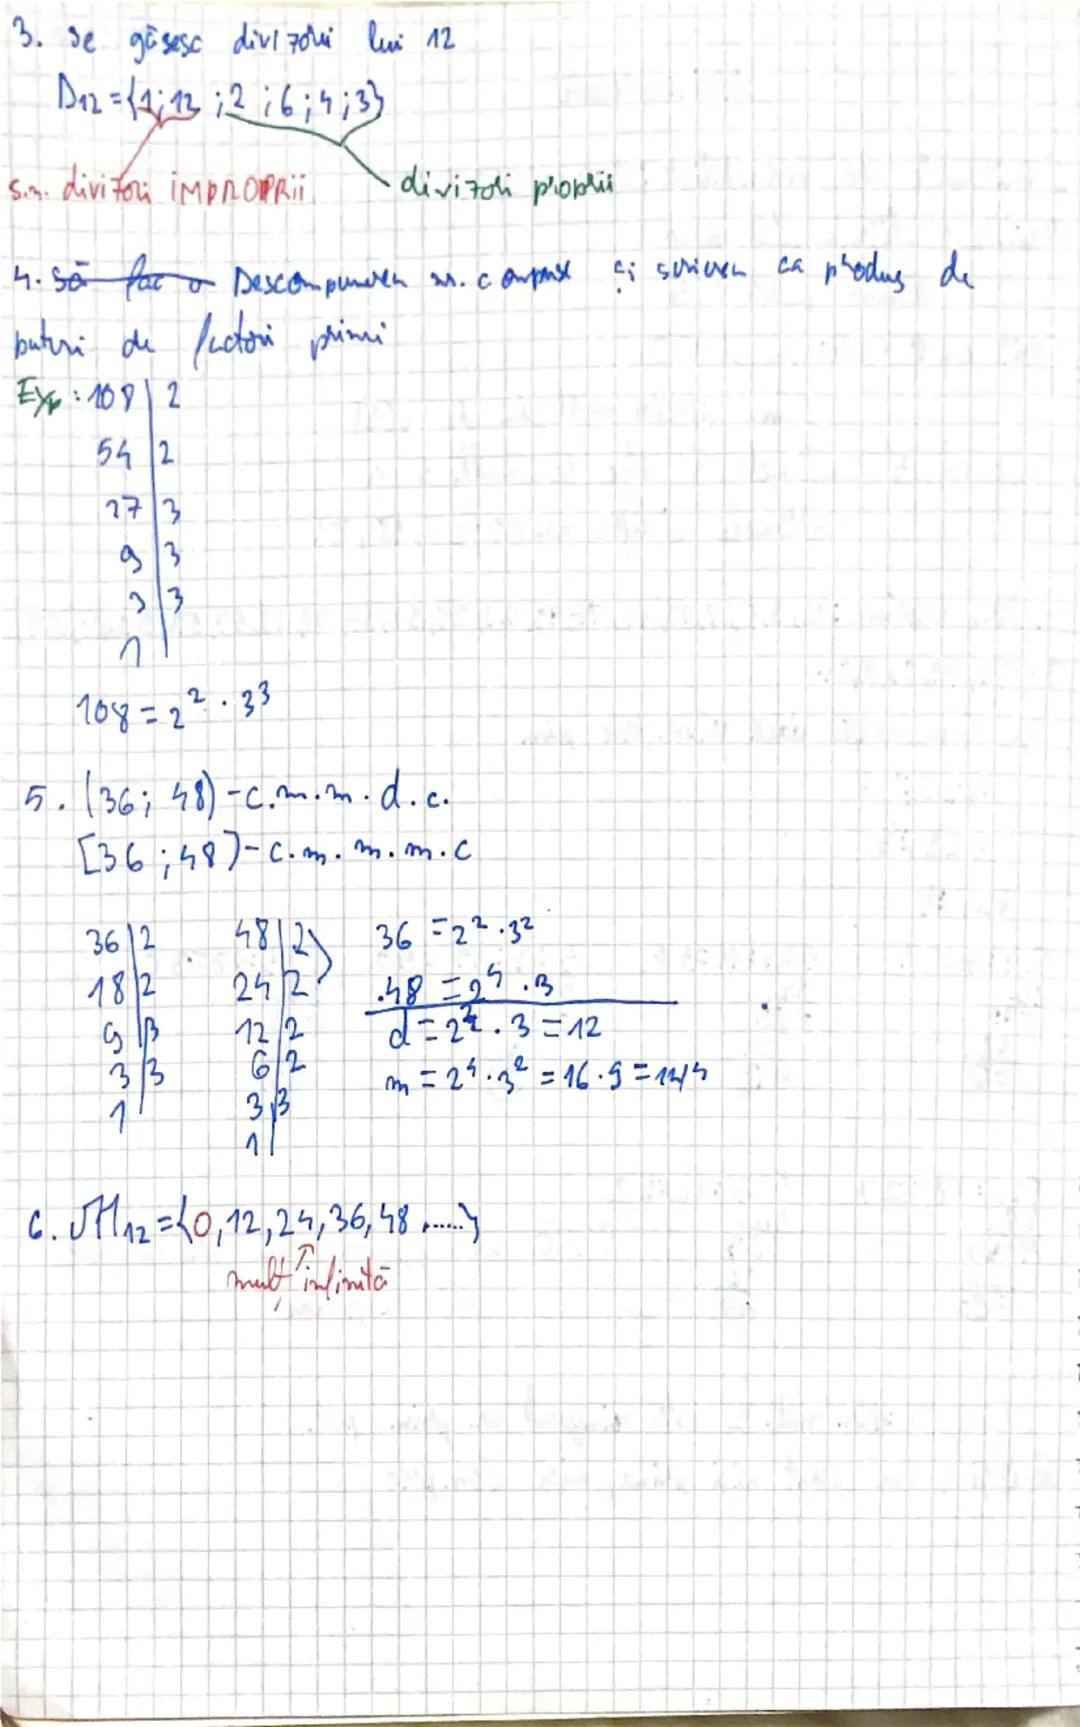 3. se găsesc divizorii lui 12
D12={1;12;2;6;4;3}
s.n. divizori IMPROPRII
divizori proprii
4. Să fac o Descompunerea nr. compuse și scrierea ca produs de
puteri de factori primi
Exp: 108 | 2
54 | 2
27 | 3
9 | 3
3 | 3
1
108 = 2² · 3³
5. (36; 48) - c.m.m.d.c.
[36; 48] - c.m.m.m.c
36 | 2 48 | 2 36 = 2² · 3²
18 | 2 24 | 2 .48 = 2⁴ · 3
9 | 3 12 | 2 d = 2² · 3 = 12
3 | 3 6 | 2 m = 2⁴ · 3² = 16 · 9 = 144
1 3 | 3
1
6. M12={0,12,24,36,48,......}
mulț infinită